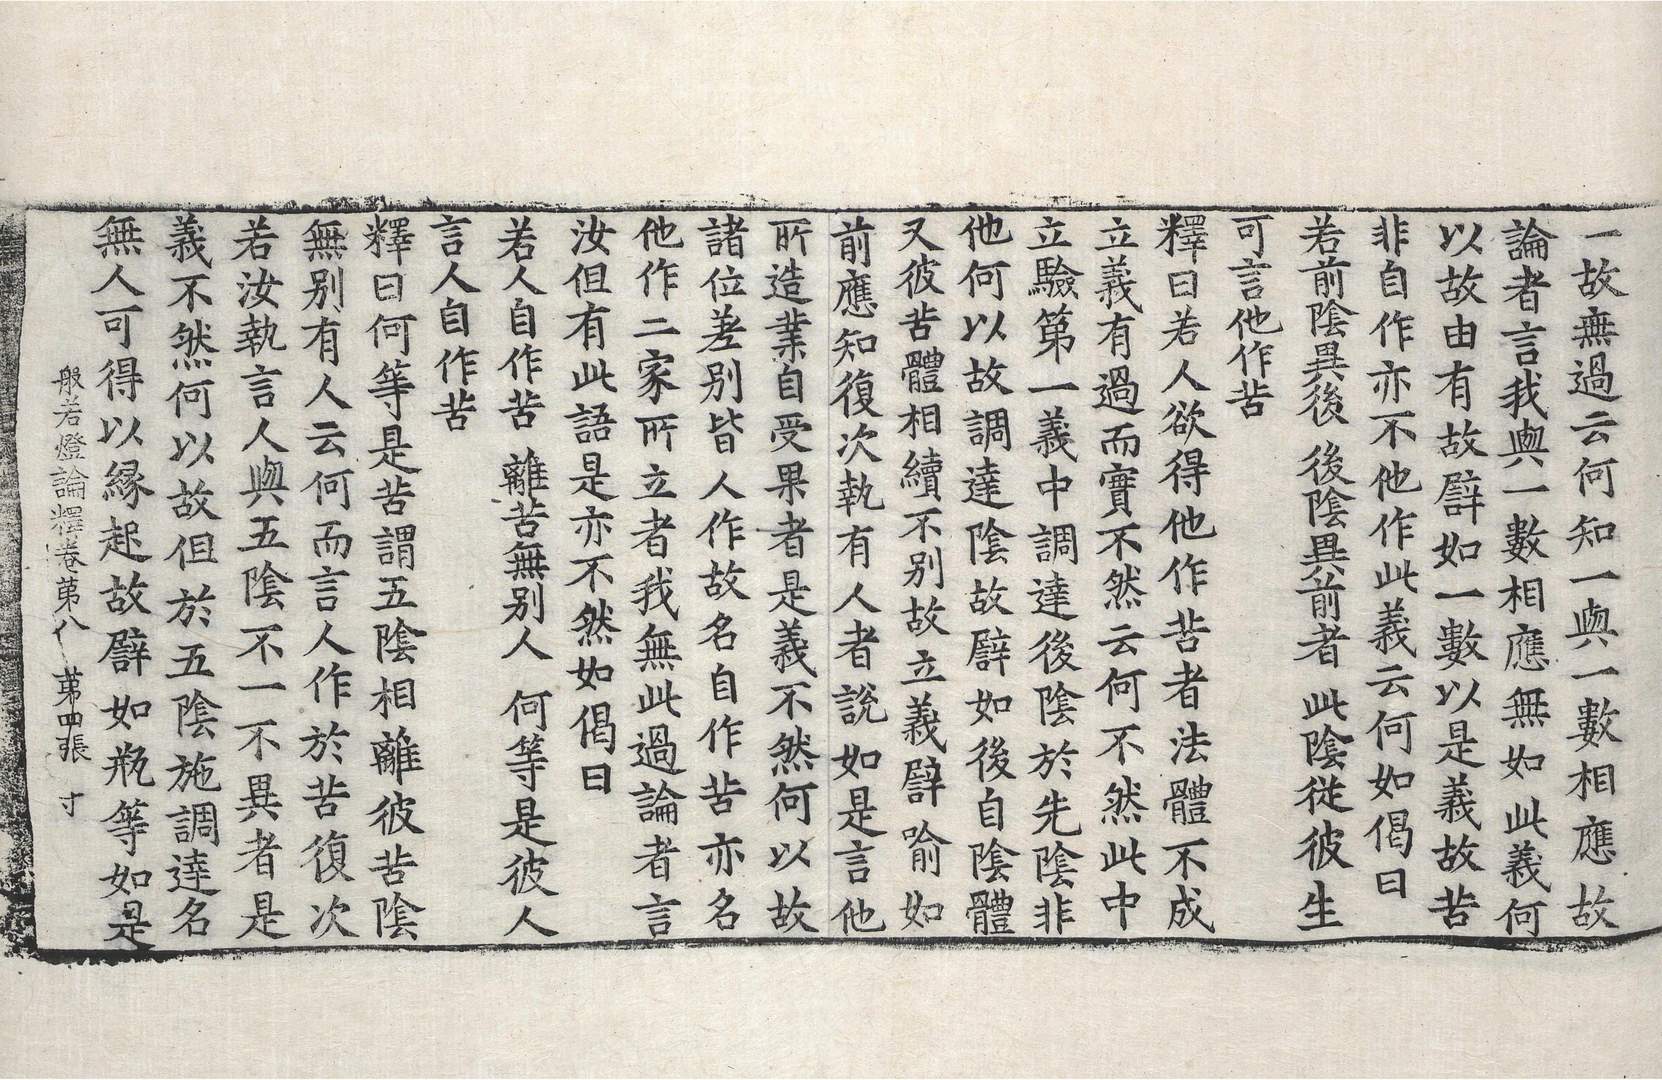 一故無過云何知一與一數相應故
論者言我與一數相應無如此義何
以故由有故譬如一數以是義故苦
非自作亦不他作此義云何如偈曰
若前陰異後 後陰異前者 此陰従彼生
可言他作苦
釋曰若人欲得他作苦者法體不成
立義有過而實不然云何不然此中
立驗第一義中調達後陰於先陰非
他何以故調達陰故譬如後自陰體
又彼苦體相續不別故立義譬喻如
前應知復次執有人者說如是言他
所造業自受果者是義不然何以故
諸位差別皆人作故名自作苦亦名
他作二家所立者我無此過論者言
汝但有此語是亦不然如偈曰
若人自作苦 離苦無別人 何等是彼人
言人自作苦
釋曰何等是苦謂五陰相離彼苦陰
無別有人云何而言人作於苦復次
若汝執言人與五陰不一不異者是
義不然何以故但於五陰施調達名
無人可得以緣起故譬如瓶等如是
般若燈論釋卷第八 第四張 寸